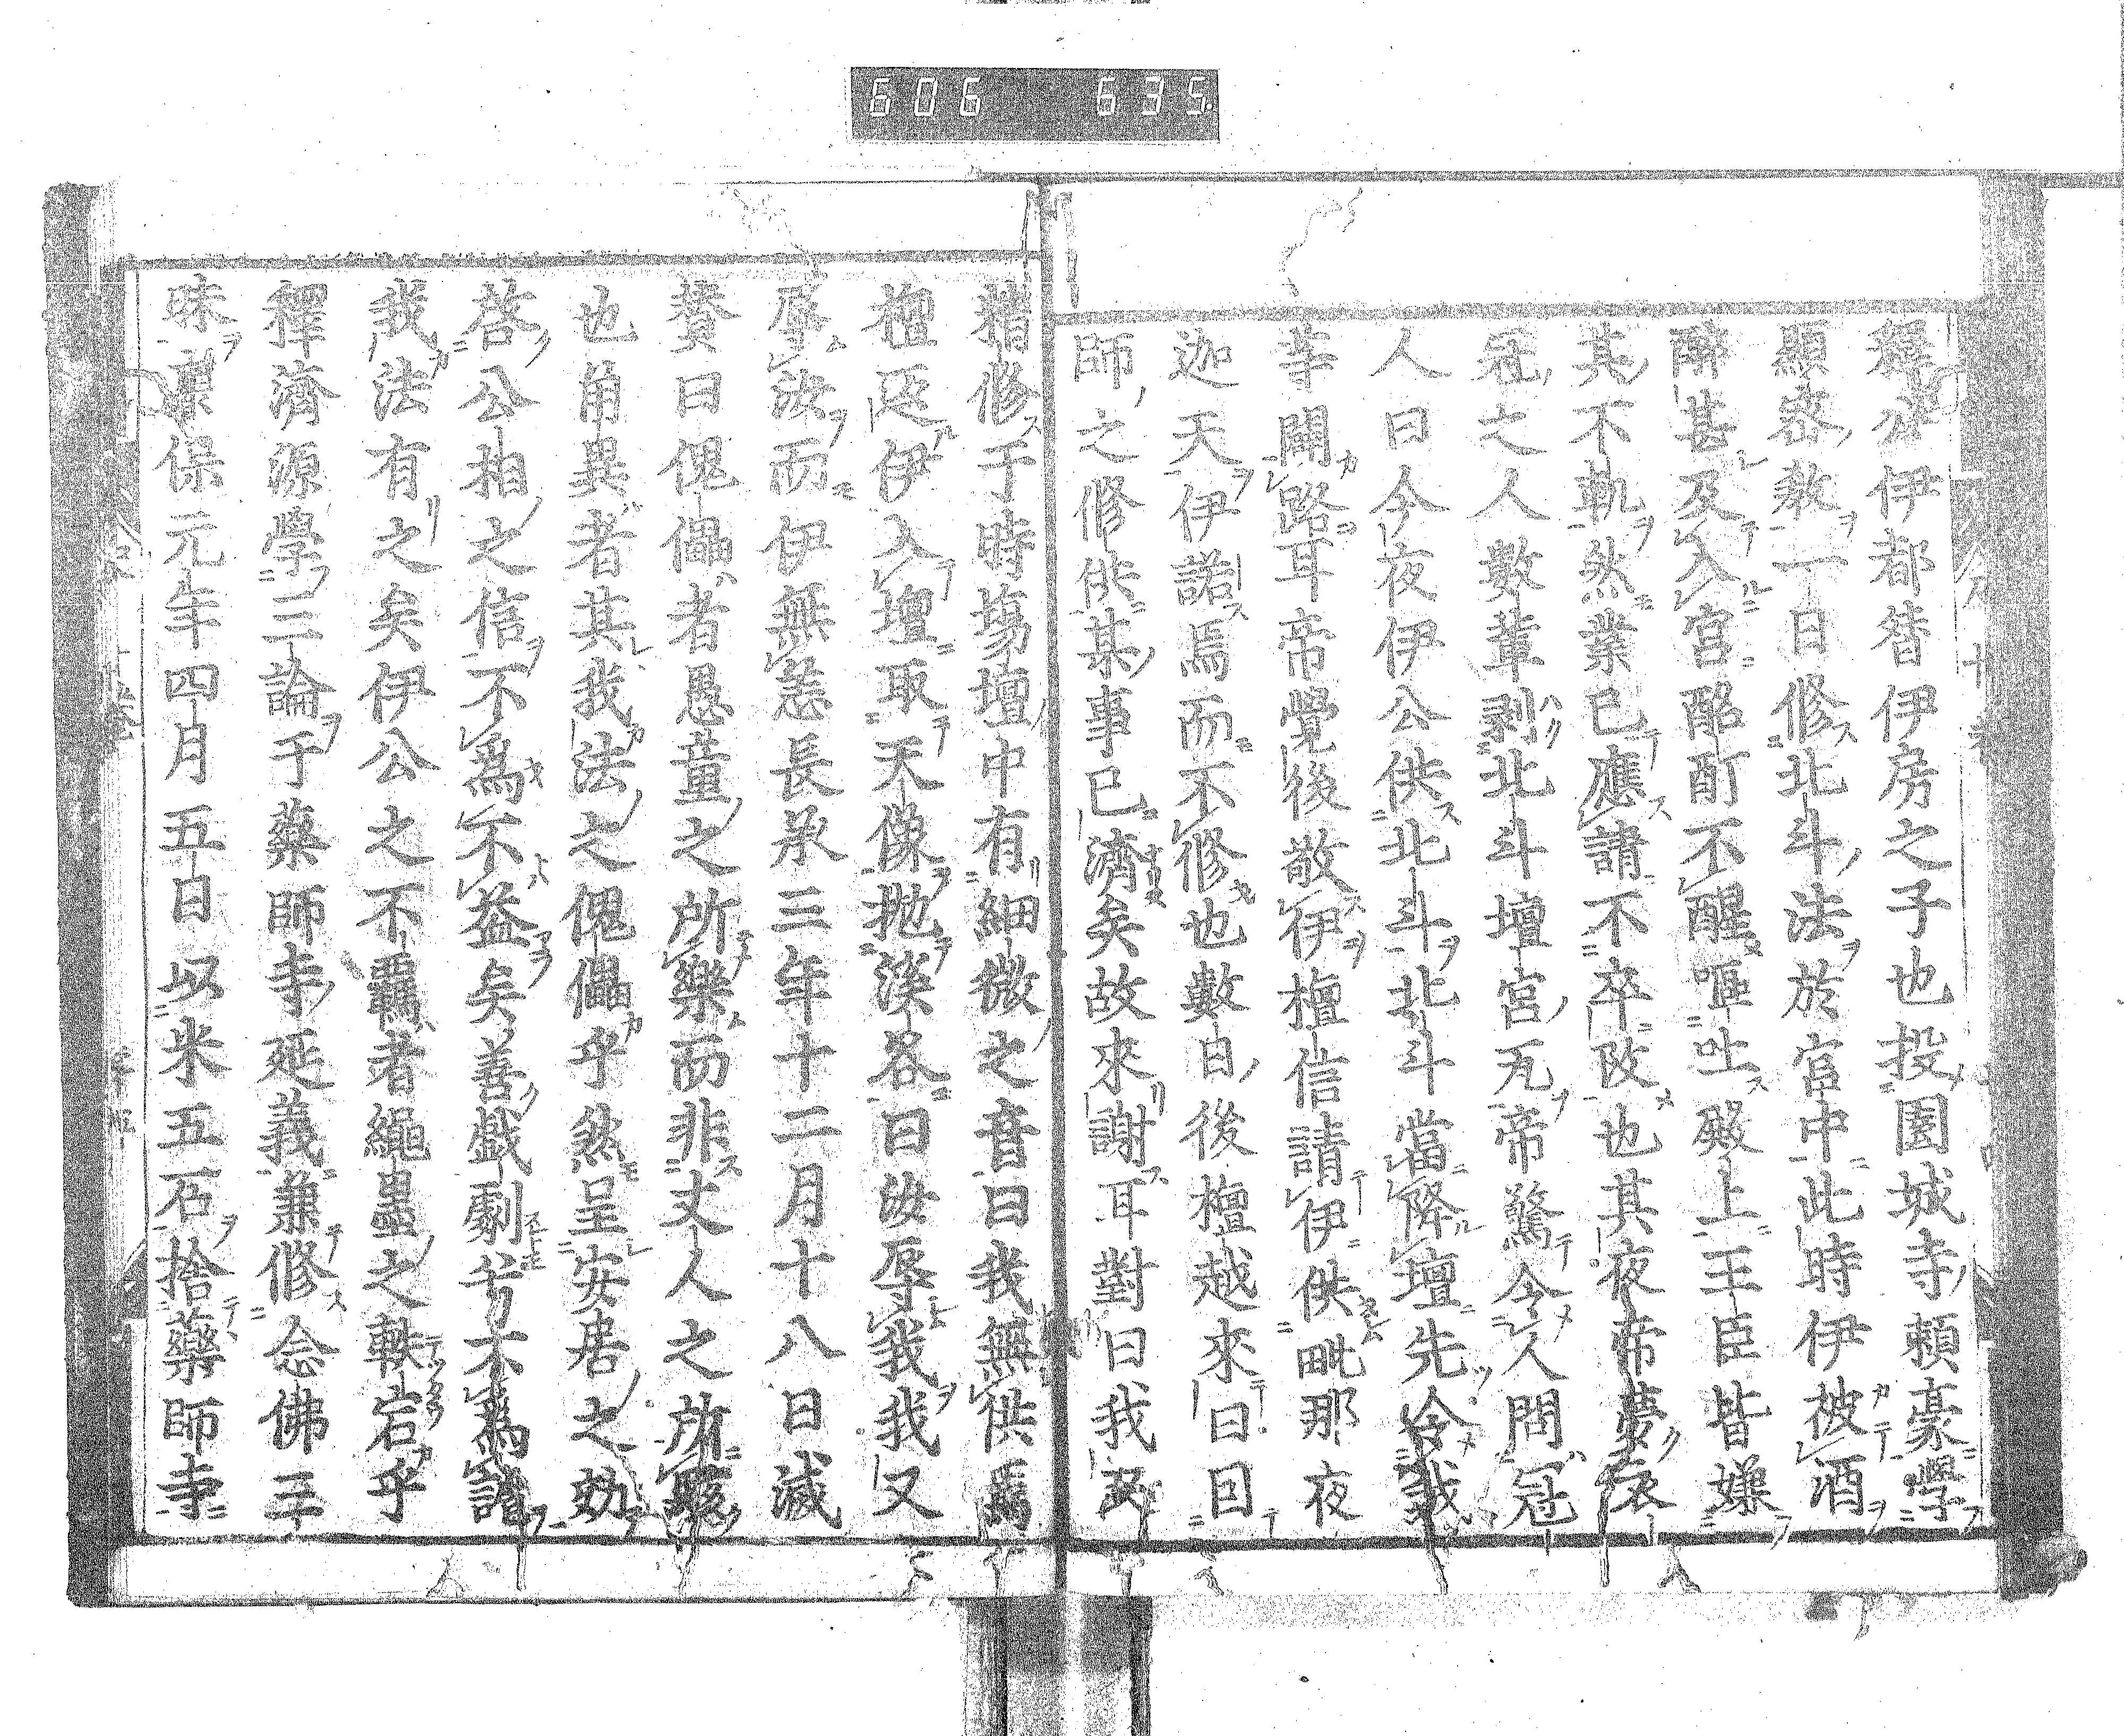 606 635
釋公伊都督伊房之子也投園城寺頼豪學
顯密教一日修北斗法於宮中此時伊被酒
醉甚及入宮酩酊不醒嘔吐殿上王臣皆嫌
其不軌然業已應請不卒改也其夜帝夢衣
冠之人數輩剥北斗壇宮瓦帝驚令人問冠
人曰今夜伊公供北斗北斗當降壇先令我
等闢路耳帝覺後敬伊檀信請伊供毗那夜
迦天伊諾焉而不修也數日後檀越來曰因
師之修供某事已濟矣故來謝耳對曰我又
精修于時塲壇中有細微之音曰我無供焉
檀返伊入壇取天像抛溪谷曰汝辱我我又
辱汝而伊無恙長承三年十二月十八日滅
賛曰傀儡者愚童之所樂而非丈人之所翫
也甬異者其我法之傀儡乎然呈安居之効
啓公拍之信不爲不益矣善戯劇兮不為謔
我法有之矣伊公之不羈者繩墨之軼宕乎
釋濟源學三論于藥師寺延義兼修念佛三
昧康保元年四月五日以米五石捨藥師寺